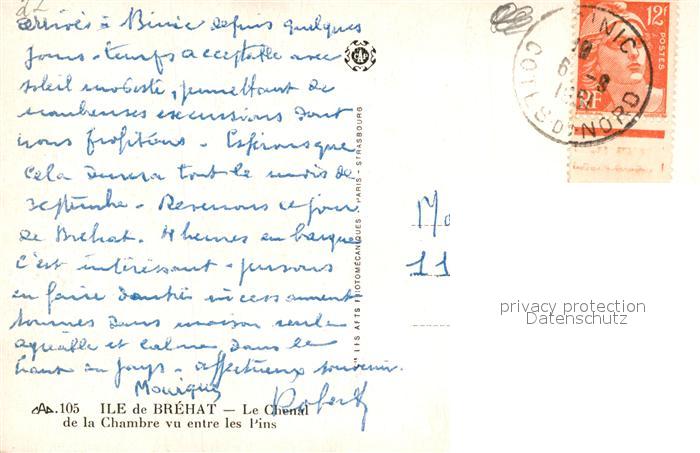 arrivés à Binic depuis quelques
jours - temps acceptable avec
soleil modeste, permettant de
nombreuses excursions dont
nous profitons - Espérons que
cela durera tout le mois de
septembre - Revenons ce jour
de Bréhat. 4 heures en barque
c'est intéressant - pensons
en faire d'autres incessamment
sommes dans maison seule
agréable et calme dans le
haut du pays - affectueux souvenir.
Robert
CAP
" LES ARTS PHOTOMÉCANIQUES " - PARIS - STRASBOURG
105 ILE de BRÉHAT — Le Chenal
de la Chambre vu entre les Pins
12f
POSTES
RF
BINIC
COTES DU NORD
11
privacy protection
Datenschutz